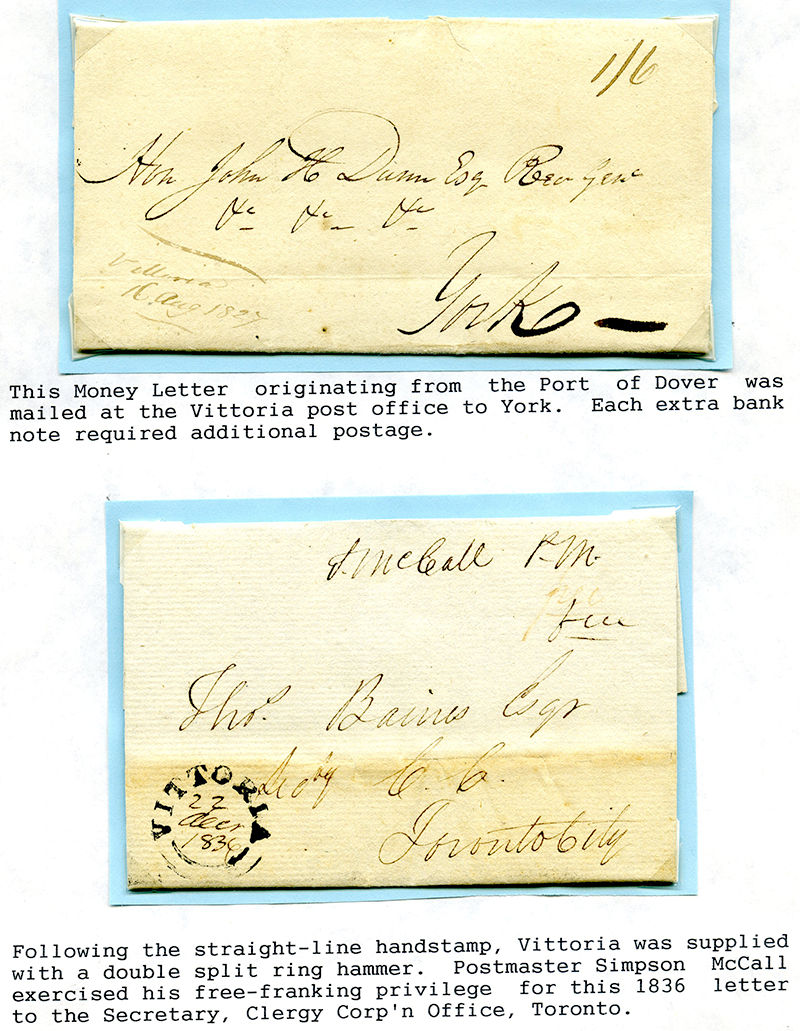 1/6
Hon John H Dunn Esq Rec Genl
&c &c &c
Vittoria
16 Aug 1827
York
This Money Letter originating from the Port of Dover was
mailed at the Vittoria post office to York. Each extra bank
note required additional postage.
S. McCall P.M.
free
Thos. Baines Esqr
Secty C. C.
Toronto City
VITTORIA
22
decr
1836
Following the straight-line handstamp, Vittoria was supplied
with a double split ring hammer. Postmaster Simpson McCall
exercised his free-franking privilege for this 1836 letter
to the Secretary, Clergy Corp'n Office, Toronto.